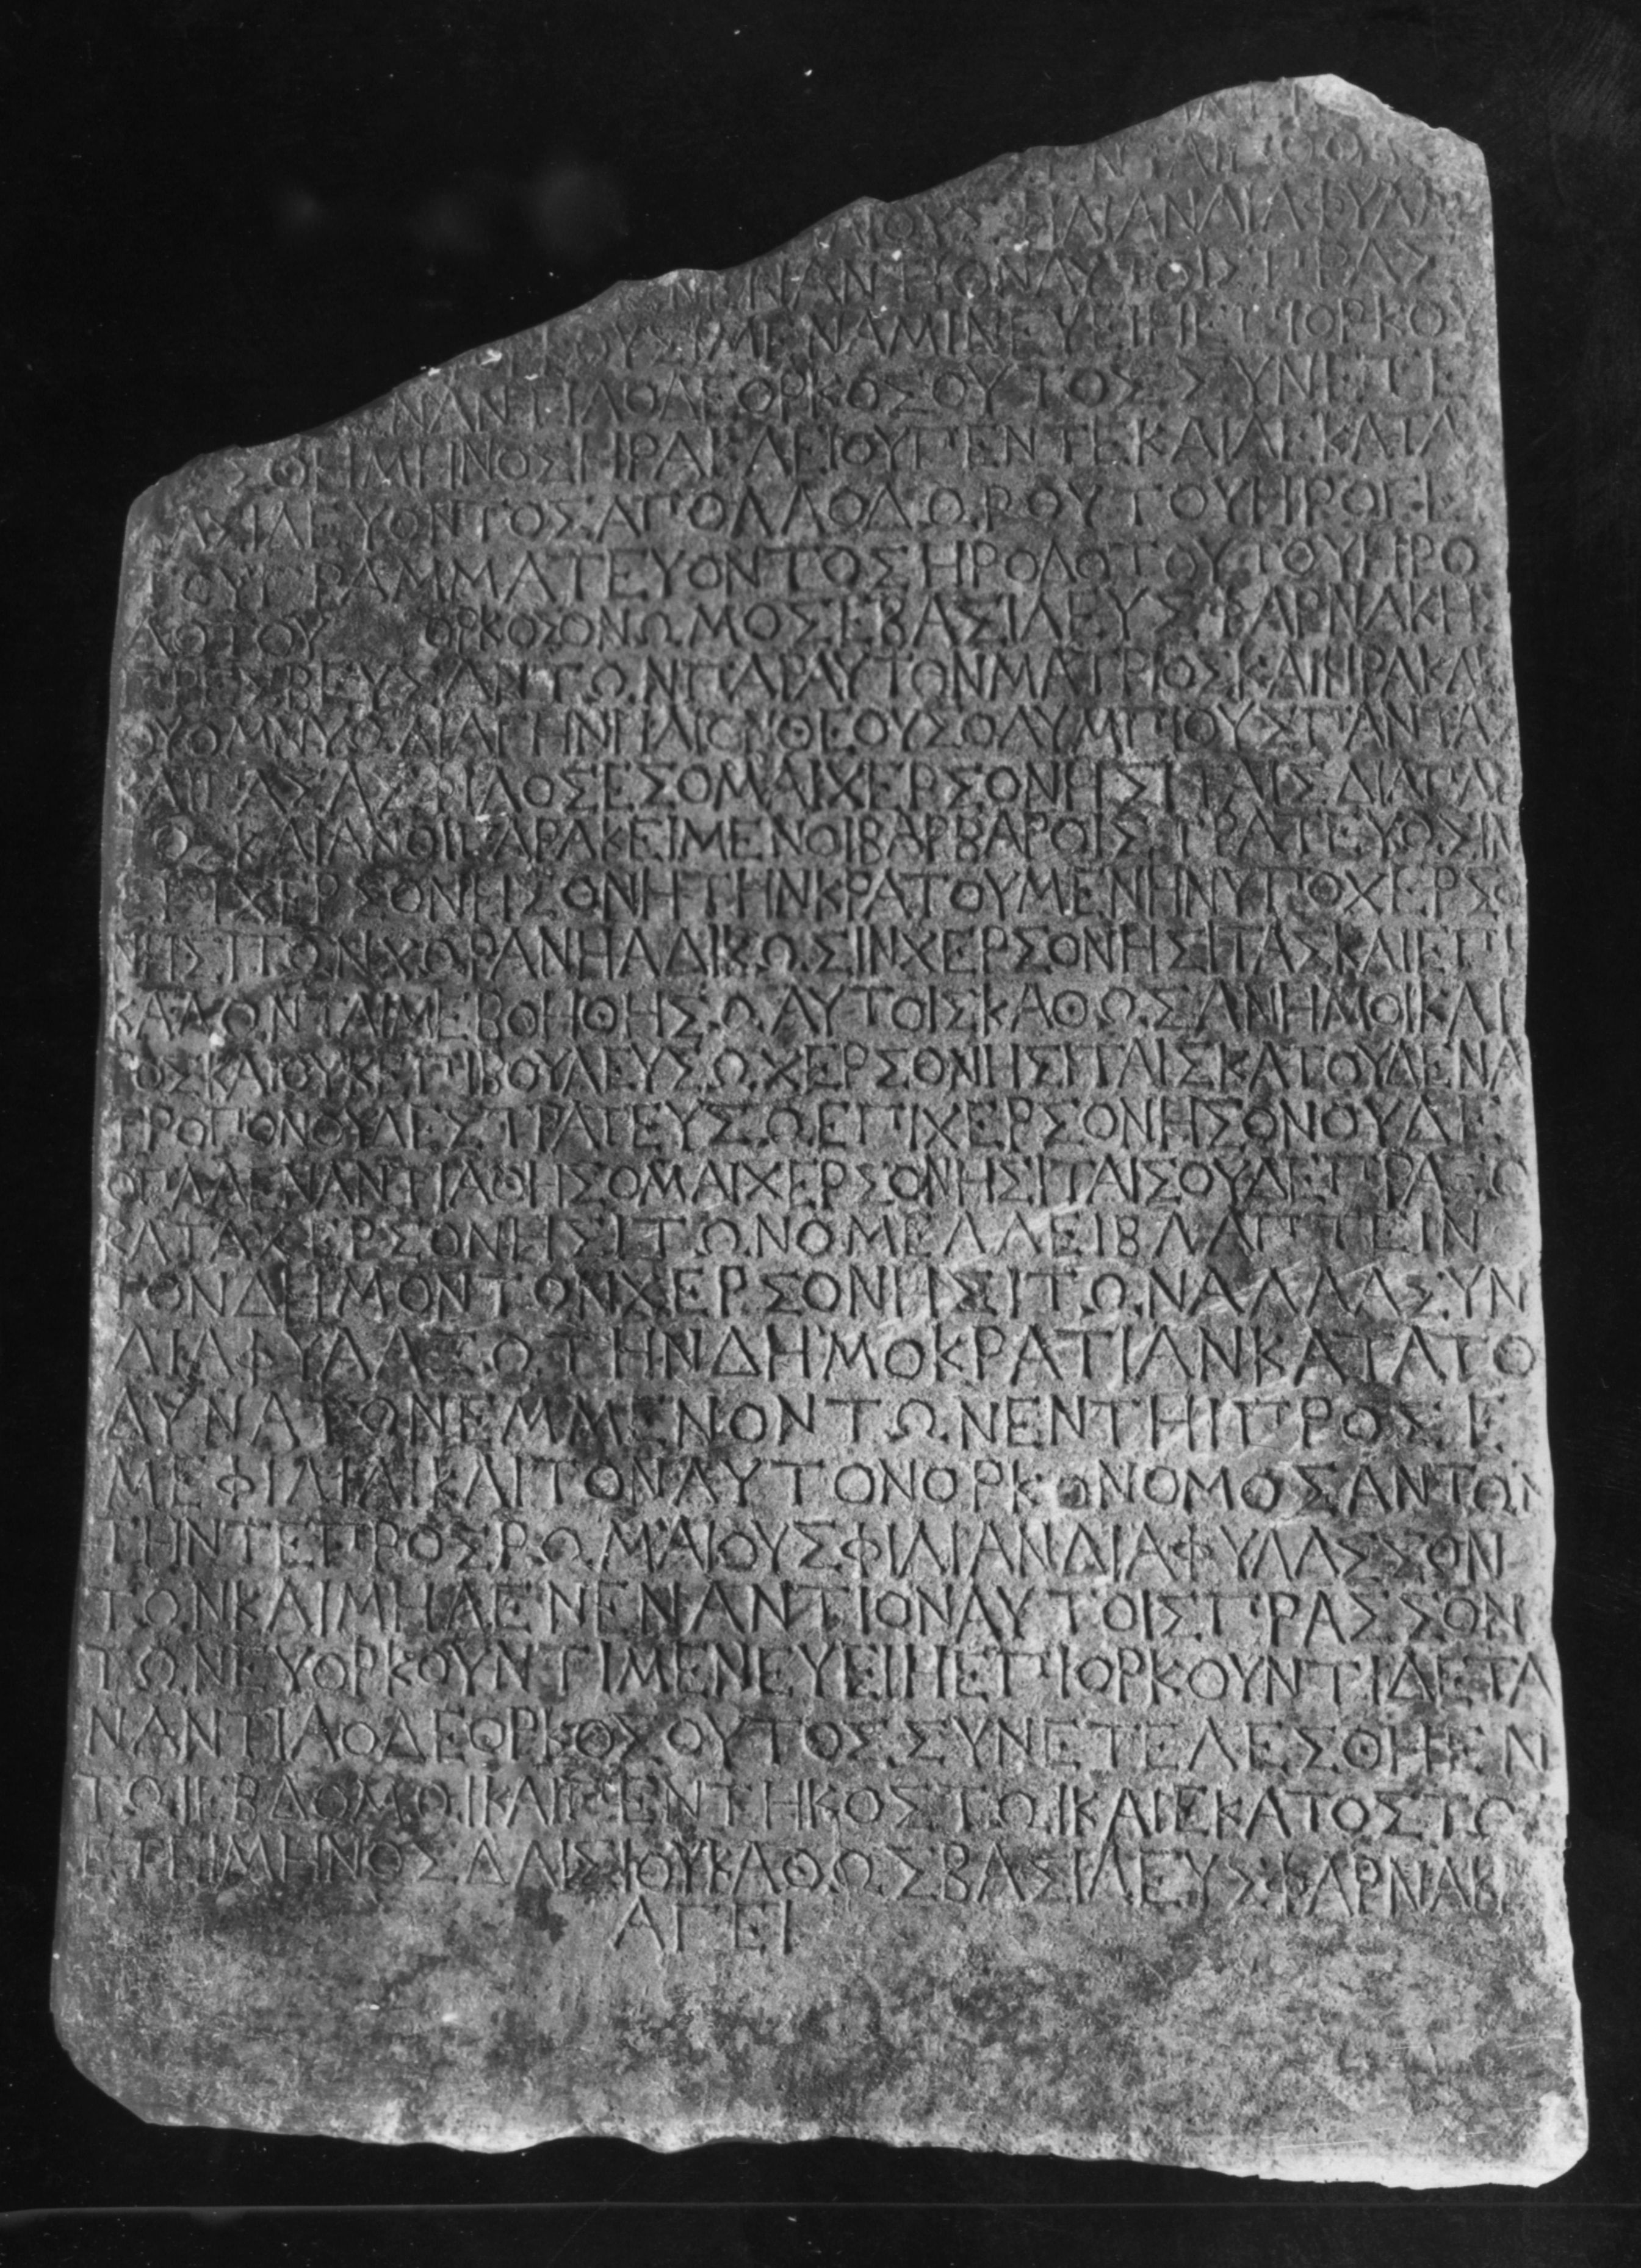 ΑΙΟΥΣΦΙΛΙΑΝΔΙΑΦΥΛΑ
ΕΝΑΝΤΙΟΝΑΥΤΟΙΣΠΡΑΣ
ΚΟΥΣΙΜΕΝΑΜΙΝΕΥΕΙΗΕΠΙΟΡΚΟΥ
ΝΑΝΤΙΑΟΔΕΟΡΚΟΣΟΥΤΟΣΣΥΝΕΤΕ
ΣΘΕΙΜΗΝΟΣΗΡΑΚΛΕΙΟΥΠΕΝΤΕΚΑΙΔΕΚΑΤΑ
ΑΣΙΛΕΥΟΝΤΟΣΑΠΟΛΛΟΔΩΡΟΥΤΟΥΗΡΟΓΕΙ
ΟΥΓΡΑΜΜΑΤΕΥΟΝΤΟΣΗΡΟΔΟΤΟΥΤΟΥΗΡΟ
ΔΟΤΟΥ ΟΡΚΟΣΟΝΩΜΟΣΕΒΑΣΙΛΕΥΣΦΑΡΝΑΚΗΣ
ΠΡΕΣΒΕΥΣΑΝΤΩΝΠΑΡΑΥΤΟΝΜΑΤΡΙΟΣΚΑΙΗΡΑΚΛΕ
ΟΥΟΜΝΥΩΔΙΑΓΗΝΗΛΙΟΝΘΕΟΥΣΟΛΥΜΠΙΟΥΣΠΑΝΤΑΣ
ΚΑΙΠΑΣΑΣΦΙΛΟΣΕΣΟΜΑΙΧΕΡΣΟΝΗΣΙΤΑΙΣΔΙΑΠΑΝ
ΤΟΣΚΑΙΑΝΟΙΠΑΡΑΚΕΙΜΕΝΟΙΒΑΡΒΑΡΟΙΣΤΡΑΤΕΥΩΣΙΝ
ΕΠΙΧΕΡΣΟΝΗΣΟΝΗΤΗΝΚΡΑΤΟΥΜΕΝΗΝΥΠΟΧΕΡΣΟ
ΝΗΣΙΤΩΝΧΩΡΑΝΗΑΔΙΚΩΣΙΝΧΕΡΣΟΝΗΣΙΤΑΣΚΑΙΕΠΙ
ΚΑΛΩΝΤΑΙΜΕΒΟΗΘΗΣΩΑΥΤΟΙΣΚΑΘΩΣΑΝΗΜΟΙΚΑΙ
ΟΣΚΑΙΟΥΚΕΠΙΒΟΥΛΕΥΣΩΧΕΡΣΟΝΗΣΙΤΑΙΣΚΑΤΟΥΔΕΝΑ
ΤΡΟΠΟΝΟΥΔΕΣΤΡΑΤΕΥΣΩΕΠΙΧΕΡΣΟΝΗΣΟΝΟΥΔΕ
ΟΠΛΑΕΝΑΝΤΙΑΘΗΣΟΜΑΙΧΕΡΣΟΝΗΣΙΤΑΙΣΟΥΔΕΠΡΑΞΩ
ΚΑΤΑΧΕΡΣΟΝΗΣΙΤΩΝΟΜΕΛΛΕΙΒΛΑΠΤΕΙΝ
ΤΟΝΔΗΜΟΝΤΩΝΧΕΡΣΟΝΗΣΙΤΩΝΑΛΛΑΣΥΝ
ΔΙΑΦΥΛΑΞΩΤΗΝΔΗΜΟΚΡΑΤΙΑΝΚΑΤΑΤΟ
ΔΥΝΑΤΟΝΕΜΜΕΝΟΝΤΩΝΕΝΤΗΙΠΡΟΣΕ
ΜΕΦΙΛΙΑΙΚΑΙΤΟΝΑΥΤΟΝΟΡΚΟΝΟΜΟΣΑΝΤΩΝ
ΤΗΝΤΕΠΡΟΣΡΩΜΑΙΟΥΣΦΙΛΙΑΝΔΙΑΦΥΛΑΣΣΟΝ
ΤΩΝΚΑΙΜΗΔΕΝΕΝΑΝΤΙΟΝΑΥΤΟΙΣΠΡΑΣΣΟΝ
ΤΩΝΕΥΟΡΚΟΥΝΤΙΜΕΝΕΥΕΙΗΕΠΙΟΡΚΟΥΝΤΙΔΕΤΑ
ΝΑΝΤΙΑΟΔΕΟΡΚΟΣΟΥΤΟΣΣΥΝΕΤΕΛΕΣΘΗΕΝ
ΤΩΙΕΒΔΟΜΩΙΚΑΙΠΕΝΤΗΚΟΣΤΩΙΚΑΙΕΚΑΤΟΣΤΩ
ΕΤΕΙΜΗΝΟΣΔΑΙΣΙΟΥΚΑΘΩΣΒΑΣΙΛΕΥΣΦΑΡΝΑΚ
ΑΓΕΙ